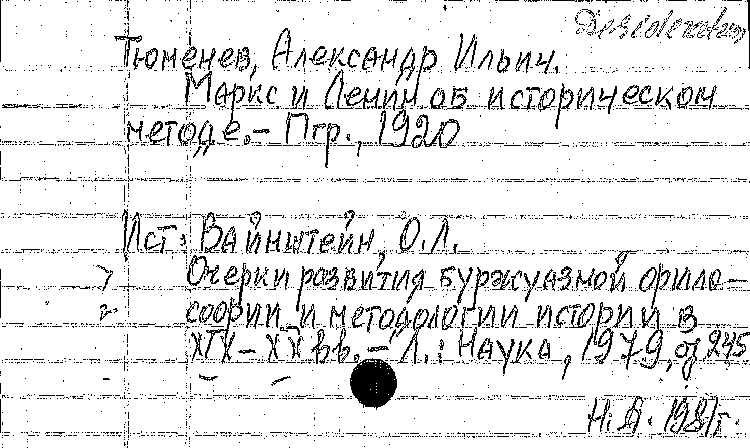 Desideratum
Тюменев, Александр Ильич.
Маркс и Ленин об историческом
методе. – Пгр., 1920
Ист: Вайнштейн, О.Л.
Очерки развития буржуазной фило-
софии и методологии истории в
XIX – XX вв. – Л.: Наука, 1979, 245
Н. А. 1981г.